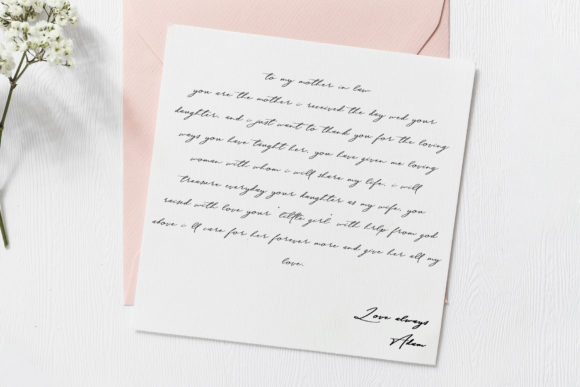 to my mother in law
you are the mother i received the day wed your
daughter, and i just want to thank you for the loving
ways you have taught her, you have given me loving
woman with whom i will share my life. i will
treasure everyday your daughter as my wife. you
raised with love your "little girl" with hrlp from god
above i ll care for her forever more and give her all my
love.
Love always
Adam